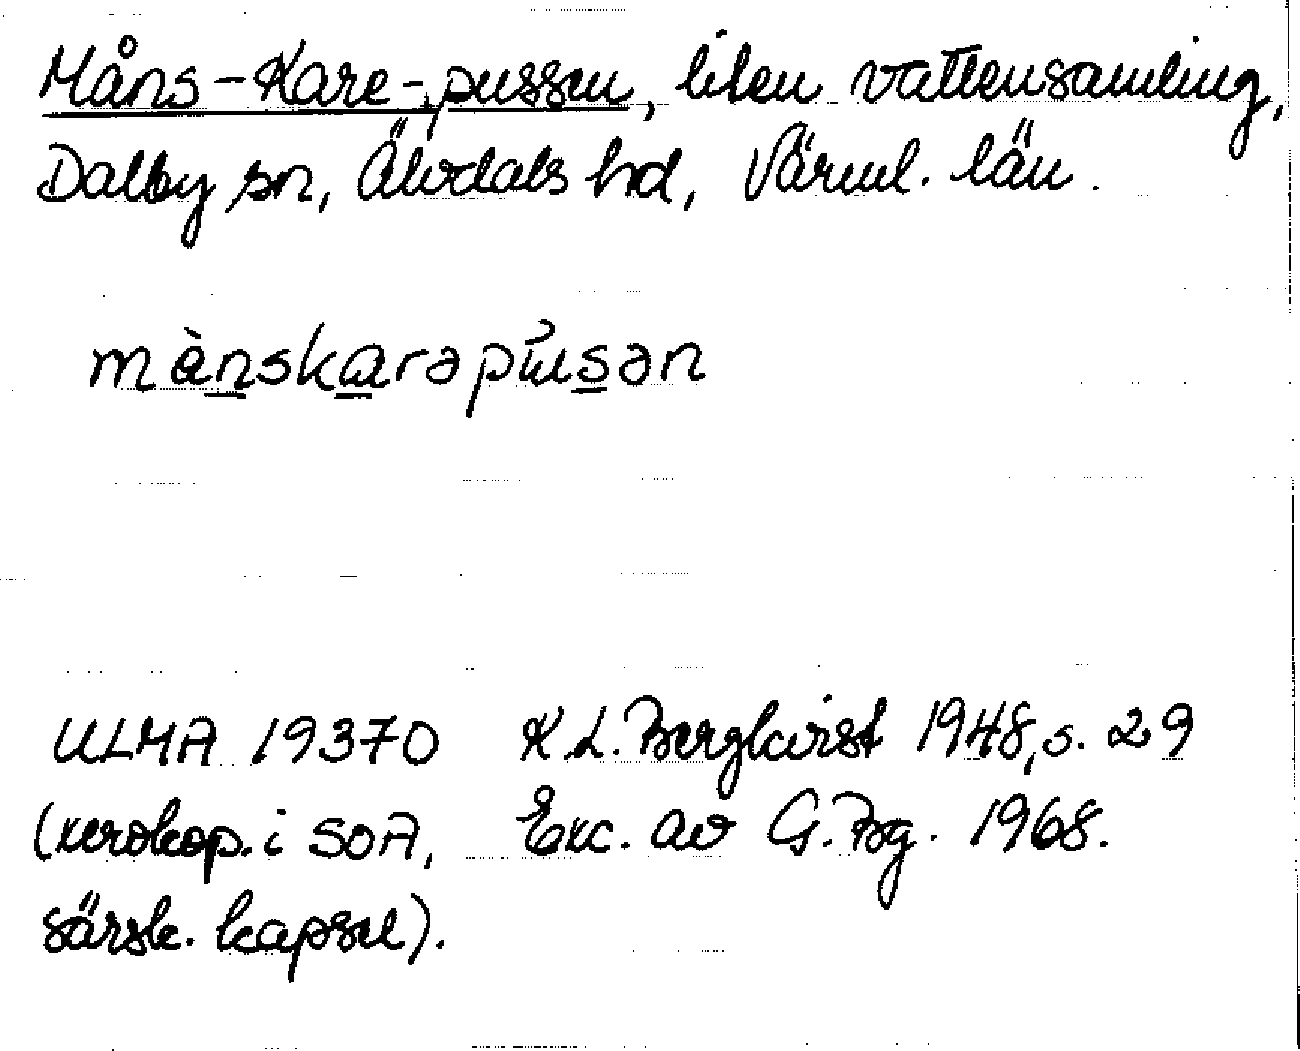 Måns-Kare-pussen, liten vattensamling,
Dalby sn, Älvdals hd, Värml. län.
mànskarəpúsən
ULMA 19370 K L. Bergkvist 1948, s. 29
(xerokop. i SOA, Exc. av G. Bg. 1968.
särsk. kapsel).